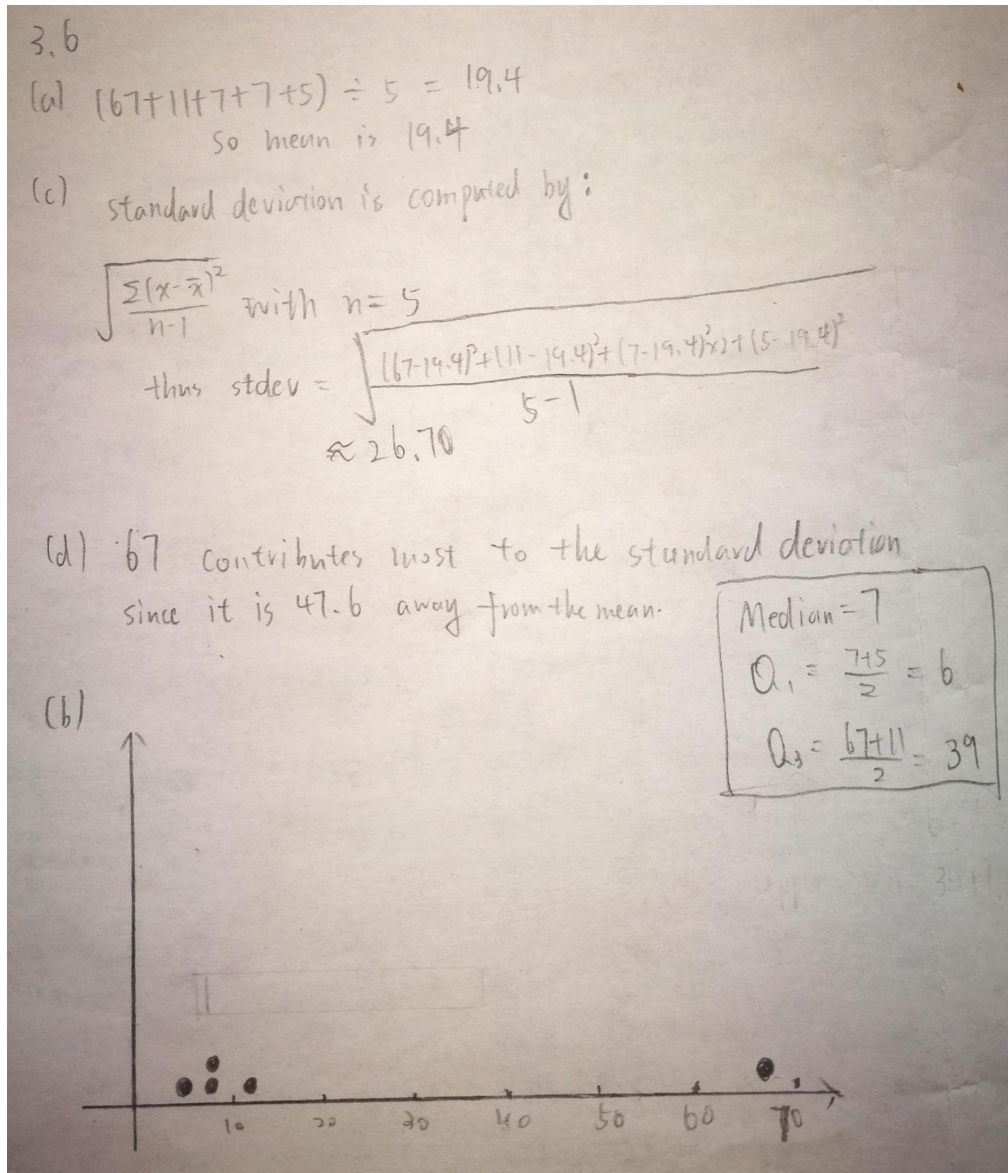 3.6
(a) (67+11+7+7+5) ÷ 5 = 19.4
So mean is 19.4
(c) standard deviation is computed by:
√(Σ(x-x̄)²/(n-1)) with n= 5
thus stdev = √(((67-19.4)²+(11-19.4)²+(7-19.4)²x2+(5-19.4)²)/(5-1))
≈ 26.70
(d) 67 contributes most to the standard deviation
since it is 47.6 away from the mean.
Median = 7
Q₁ = (7+5)/2 = 6
Q₃ = (67+11)/2 = 39
(b)
10 20 30 40 50 60 70